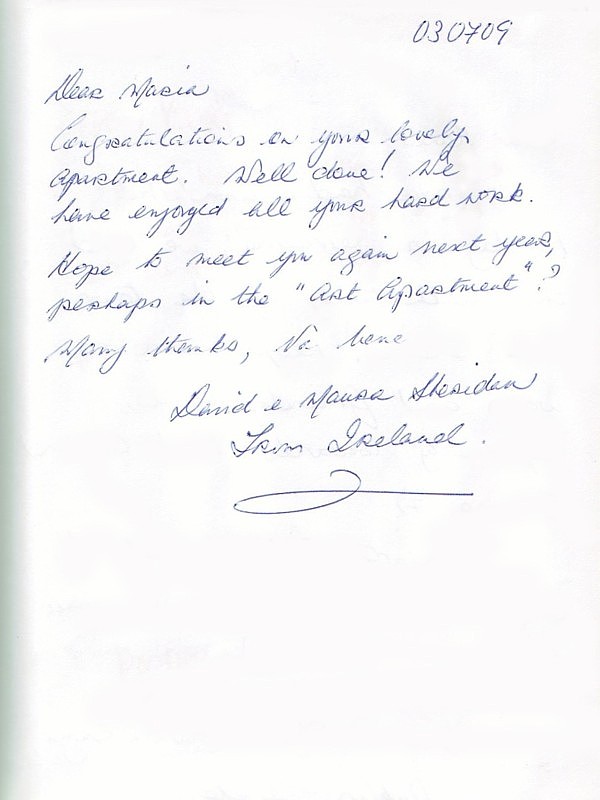 030709
Dear Maria
Congratulations on your lovely
apartment. Well done! We
have enjoyed all your hard work.
Hope to meet you again next year,
perhaps in the "Art Apartment"?
Many thanks, Va bene
David e Maura Sheridan
From Ireland.